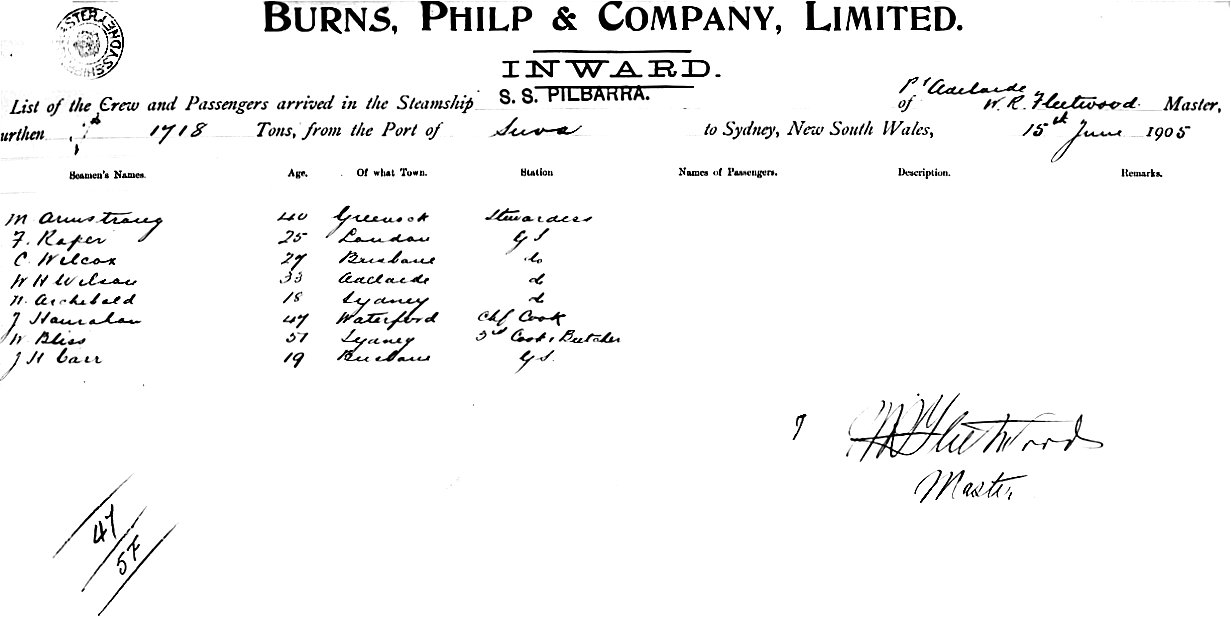 BURNS, PHILP & COMPANY, LIMITED.
INWARD.
List of the Crew and Passengers arrived in the Steamship S. S. PILBARRA. of Pt Adelaide W. R. Fleetwood Master,
urthen 1718 Tons, from the Port of Suva to Sydney, New South Wales, 15th June 1905
Seamen's Names. Age. Of what Town. Station Names of Passengers. Description. Remarks.
M Armstrong 40 Greenock Stewardess
F. Raper 25 London G S
C. Wilcox 27 Brisbane do
W H Wilson 33 Adelaide d
N. Archibald 18 Sydney d
J Hanrahan 47 Waterford Chf Cook
W Bliss 51 Sydney Cook & Butcher
J H Carr 19 Brisbane G S.
7 Fleetwood
Master
47
57